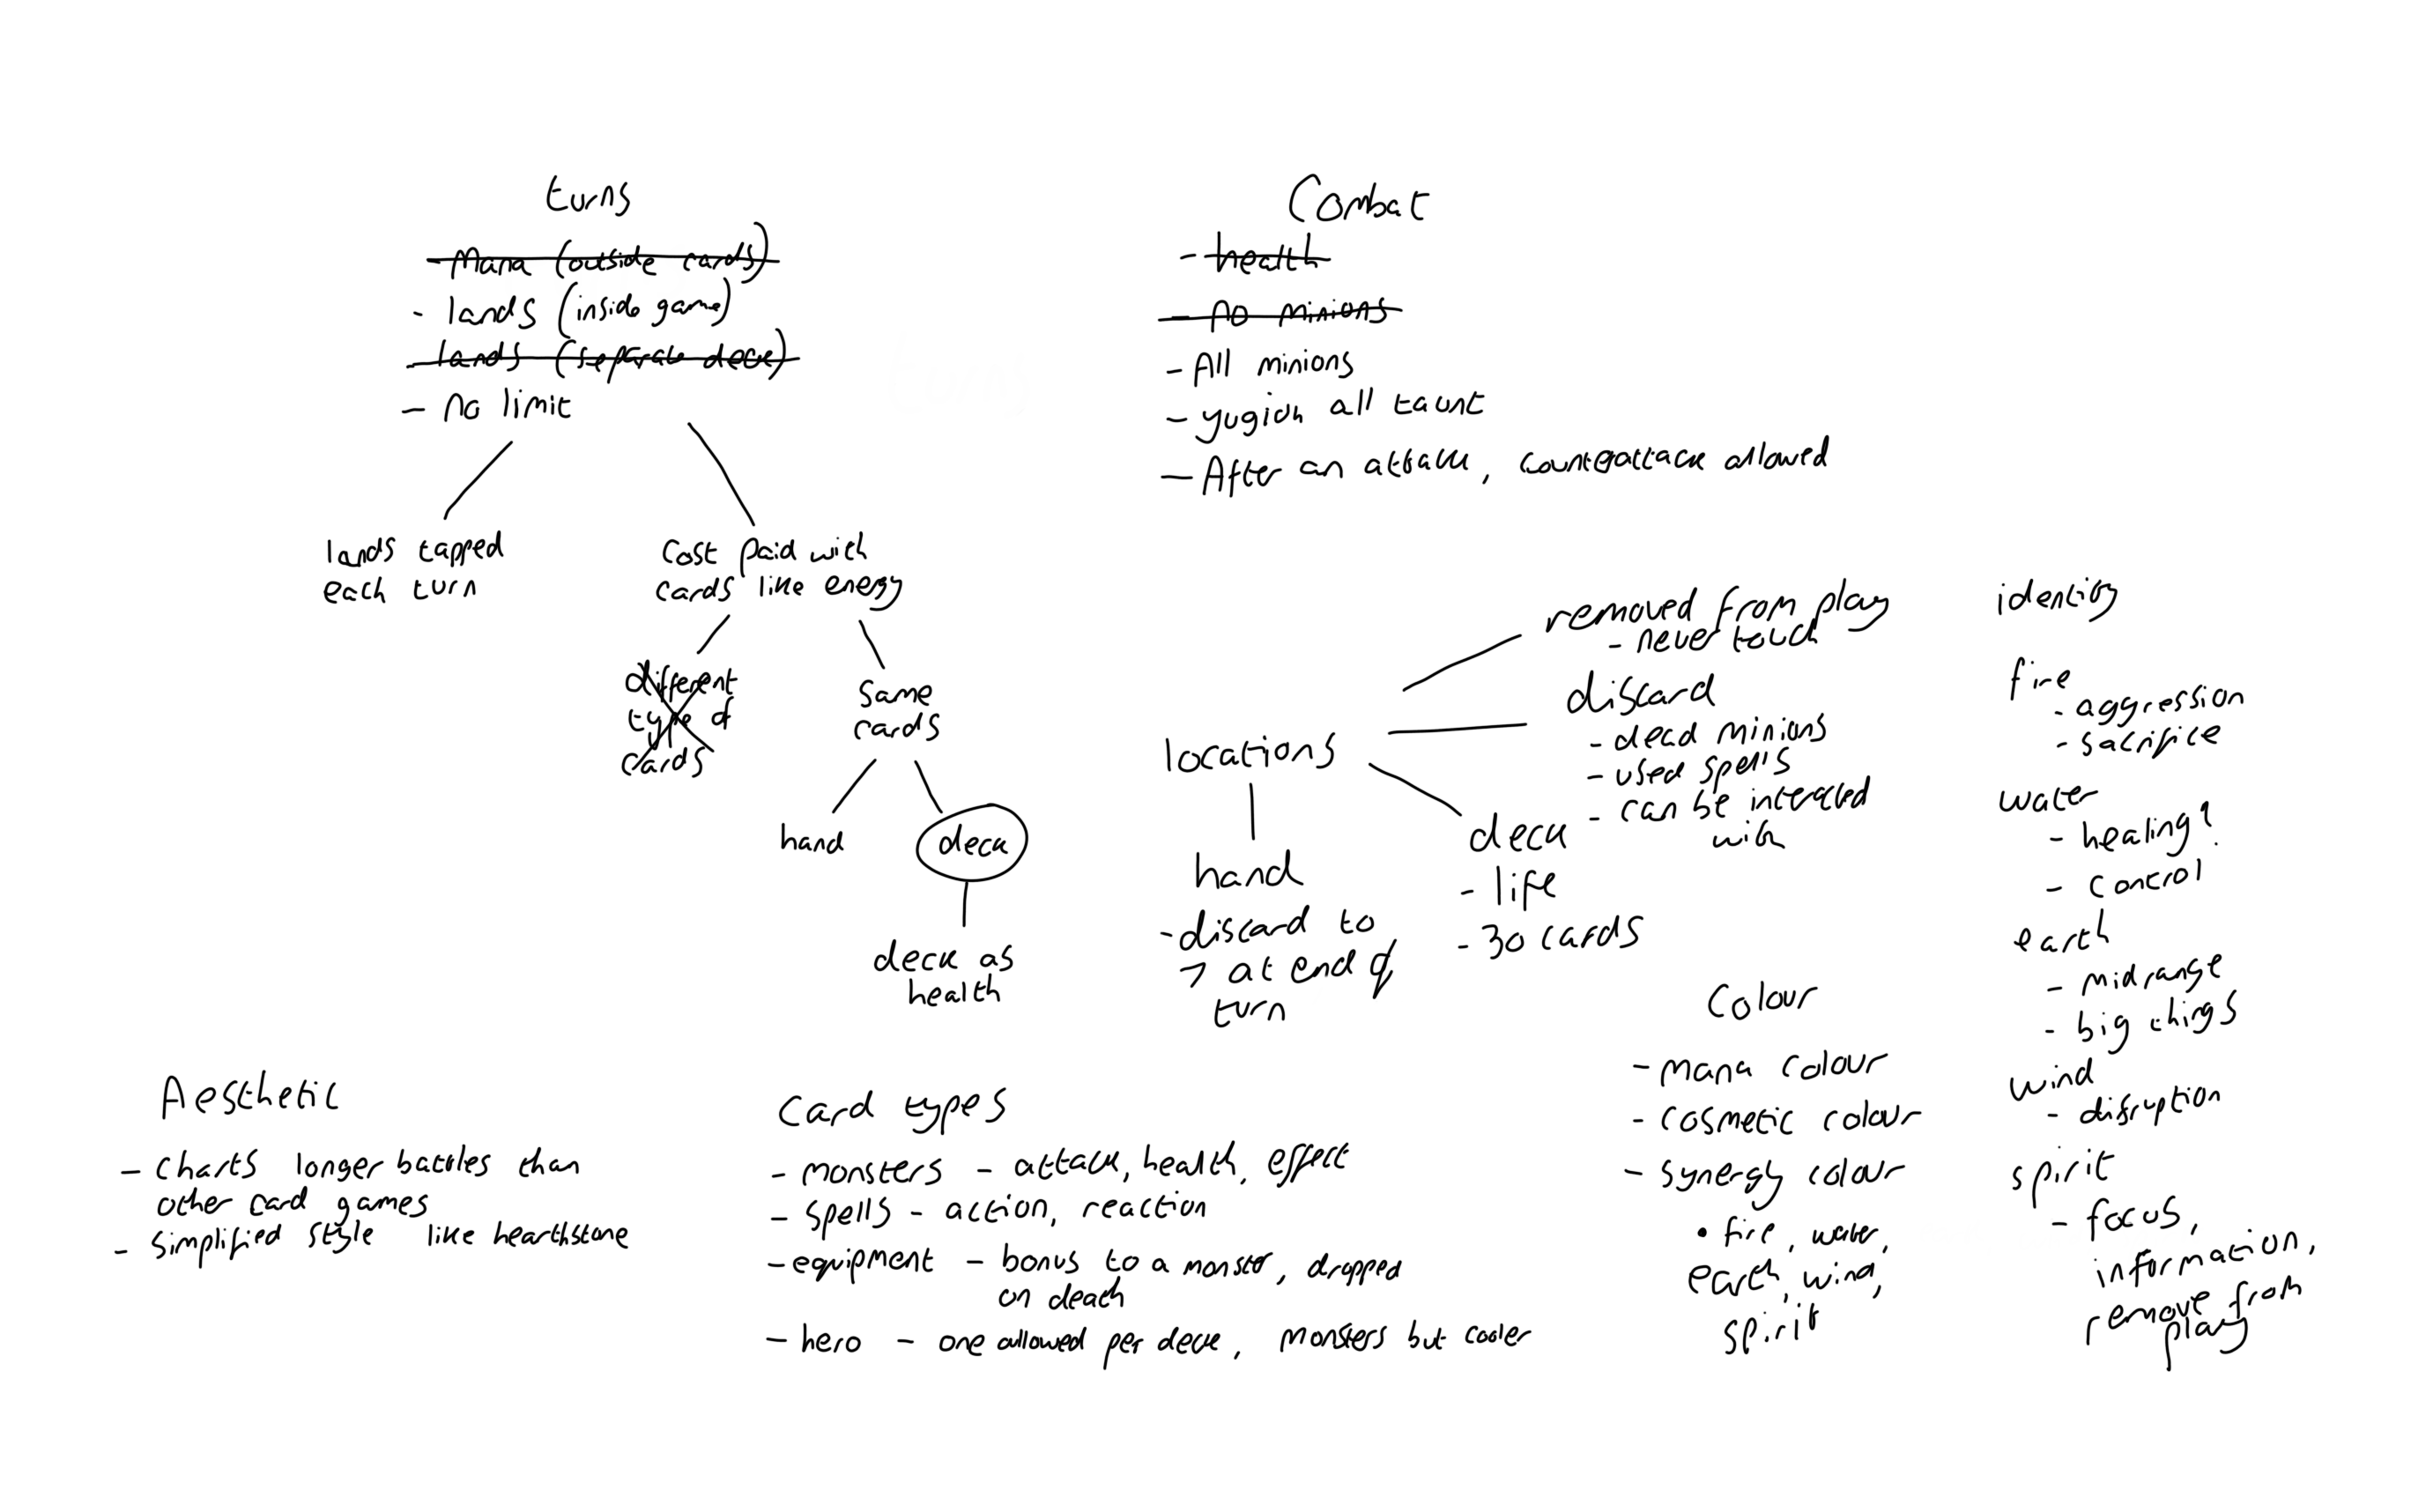 turns
- Mana (outside cards)
- lands (inside game)
- lands (separate deck)
- no limit
lands tapped
each turn
Cost paid with
cards like energy
different
type of
cards
same
cards
hand
deck
deck as
health
Combat
- health
- no minions
- All minions
- yugioh all taunt
- After an attack, counterattack allowed
locations
removed from play
- never touch
discard
- dead minions
- used spells
- can be interacted
with
deck
- life
- 30 cards
hand
- discard to
7 at end of
turn
identity
fire
- aggression
- sacrifice
water
- healing?
- control
earth
- midrange
- big things
wind
- disruption
spirit
- focus,
information,
remove from
play
Colour
- mana colour
- cosmetic colour
- synergy colour
• fire, water,
earth, wind,
spirit
Aesthetic
- charts longer battles than
other card games
- simplified style like hearthstone
Card types
- monsters - attack, health, effect
- spells - action, reaction
- equipment - bonus to a monster, dropped
on death
- hero - one allowed per deck, monsters but cooler